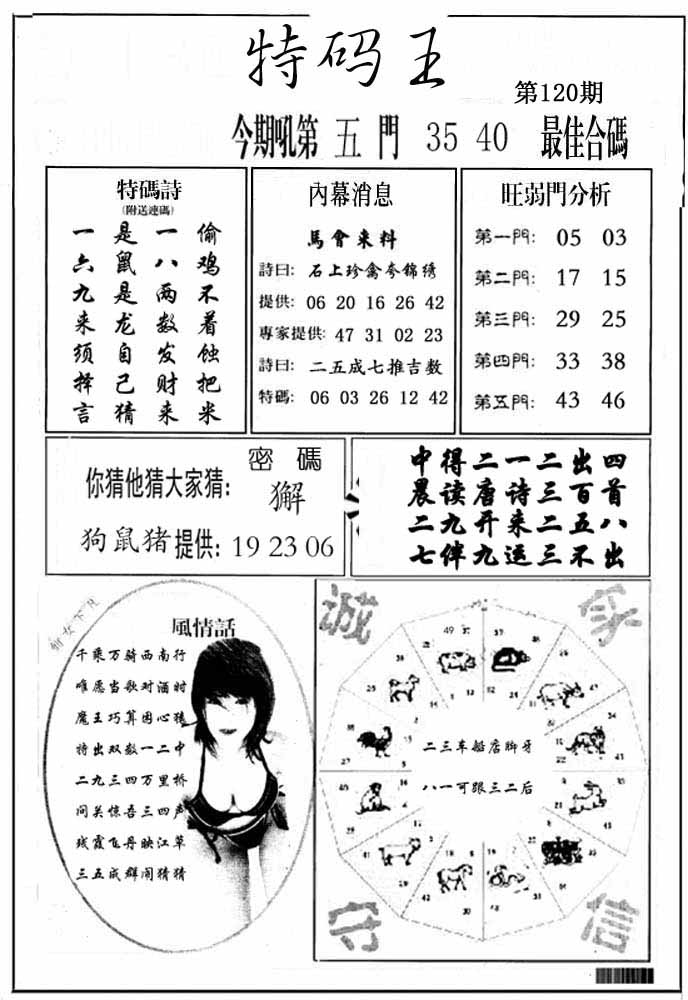 特码王
第120期
今期吼第 五 門 35 40 最佳合碼
特碼詩
(附送連碼)
一是一偷
六鼠八鸡
九是两不
来龙数着
须自发蚀
择己财把
言猜来米
內幕消息
馬會来料
詩曰: 石上珍禽夸锦绣
提供: 06 20 16 26 42
專家提供: 47 31 02 23
詩曰: 二五成七推吉数
特碼: 06 03 26 12 42
旺弱門分析
第一門: 05 03
第二門: 17 15
第三門: 29 25
第四門: 33 38
第五門: 43 46
密碼
你猜他猜大家猜: 獬
狗鼠猪提供: 19 23 06
中得二一二出四
晨读唐诗三百首
二九开来二五八
七伴九运三不出
風情話
千乘万骑西南行
唯愿当歌对酒时
魔王巧算困心猿
特出双数一二中
二九三四万里桥
间关惊吾三四声
残霞飞丹映江草
三五成群闹猜猜
诚
守
信
二三车船店脚牙
八一可跟三二后